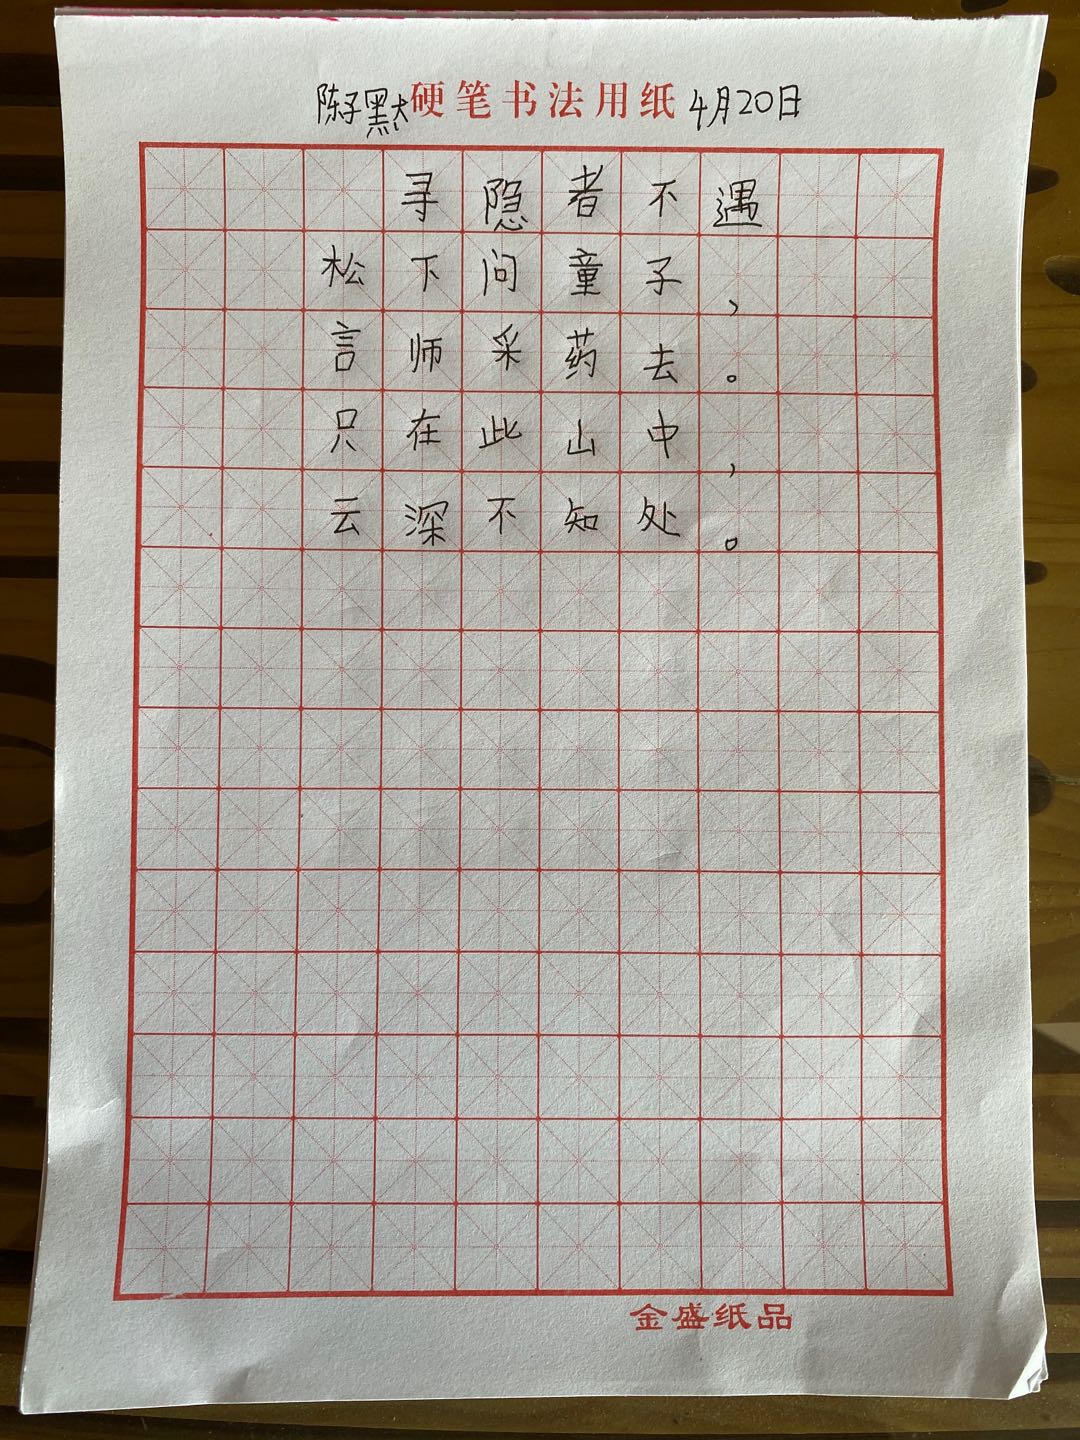 陈子默 硬笔书法用纸 4月20日
寻隐者不遇
松下问童子，
言师采药去。
只在此山中，
云深不知处。
金盛纸品